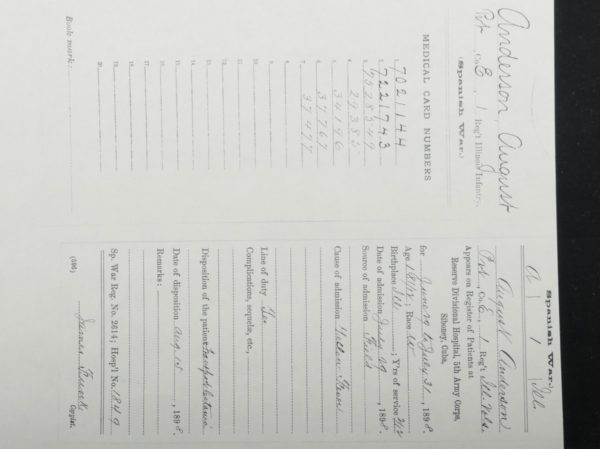 Anderson, August
Pvt., Co. E, 1 Reg't Illinois Infantry.
(Spanish War.)
MEDICAL CARD NUMBERS
1. 7021144
2. 7221743
3. 7528549
4. 29385
5. 34146
6. 37767
7. 37477
8.
9.
10.
11.
12.
13.
14.
15.
16.
17.
18.
19.
20.
Book mark:
(Spanish War.)
A | 1 | Ills.
August Anderson
Pvt., Co. E, 1 Reg't Ill. Vols.
Appears on Register of Patients at
Reserve Divisional Hospital, 5th Army Corps,
Siboney, Cuba,
for June 29 to July 31, 1898.
Age ; Race W
Birthplace Ill ; Y'rs of service
Date of admission July 29, 1898.
Source of admission Field
Cause of admission Yellow Fever
Line of duty Yes
Complications, sequelæ, etc.,
Disposition of the patient
Date of disposition Aug 1st, 1898.
Remarks:
Sp. War Reg. No. 2614; Hosp'l No. 1849
(596)
James
Copyist.